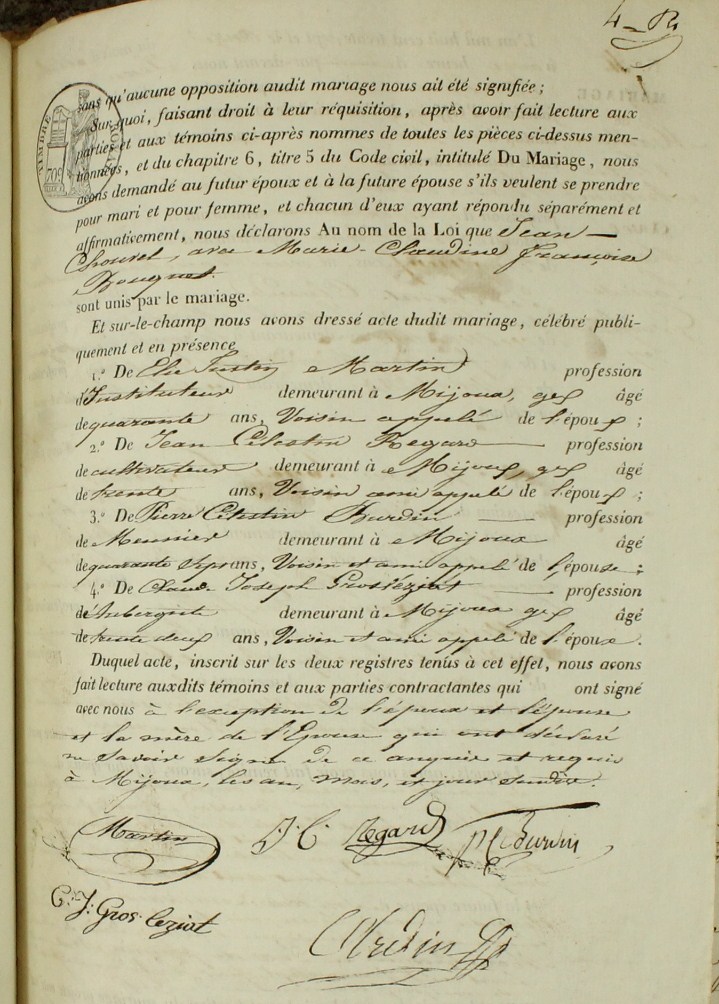 sans qu'aucune opposition audit mariage nous ait été signifiée ;
Sur quoi, faisant droit à leur réquisition, après avoir fait lecture aux
parties et aux témoins ci-après nommes de toutes les pièces ci-dessus men-
tionnées, et du chapitre 6, titre 5 du Code civil, intitulé Du Mariage, nous
avons demandé au futur époux et à la future épouse s'ils veulent se prendre
pour mari et pour femme, et chacun d'eux ayant répondu séparément et
affirmativement, nous déclarons Au nom de la Loi que Jean
avec Marie-Claudine Françoise
Bouquet.
sont unis par le mariage.
Et sur-le-champ nous avons dressé acte dudit mariage, célébré publi-
quement et en présence
1.° De Elie Justin Martin profession
d'Instituteur demeurant à Mijoux, gex âgé
de quarante ans, Voisin appelé de l'époux ;
2.° De Jean Célestin Regard profession
de cultivateur demeurant à Mijoux, gex âgé
de trente ans, Voisin ami appelé de l'époux ;
3.° De Pierre Célestin Burdin profession
de Meunier demeurant à Mijoux âgé
de quarante sept ans, Voisin et ami appelé de l'épouse ;
4.° De Claude Joseph Grosleziat profession
d'Aubergiste demeurant à Mijoux gex âgé
de trente deux ans, Voisin et ami appelé de l'épouse.
Duquel acte, inscrit sur les deux registres tenus à cet effet, nous avons
fait lecture auxdits témoins et aux parties contractantes qui ont signé
avec nous à l'exception de l'époux et l'épouse
et la mère de l'Epouse qui ont déclaré
ne savoir signé de ce enquis et requis
à Mijoux, les an, mois, et jour susdits.
Martin J. C. Regard P C Burdin
C. J. Gros leziat